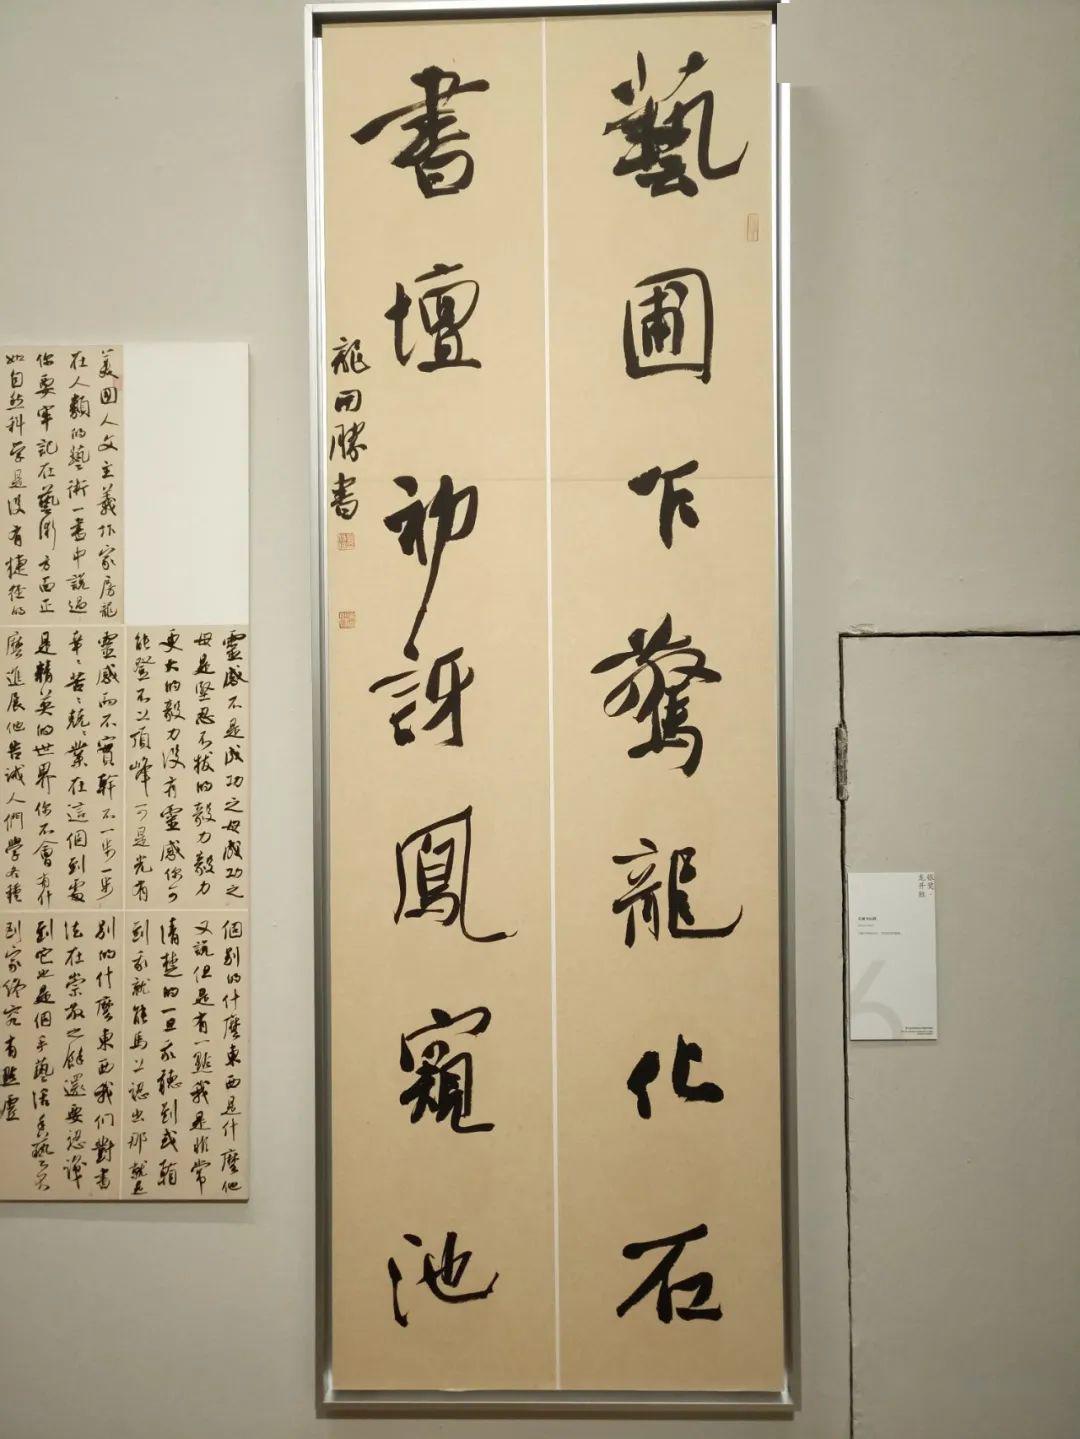 藝圃乍驚龍化石
書壇初訝鳳窺池
龍開勝書
美國人文主義作家房龍
在人類的藝術一書中說過
你要牢記在藝術方面正
如自然科学是没有捷徑的
靈感不是成功之母成功之
母是堅忍不拔的毅力毅力
更大的毅力没有靈感你可
能登不上頂峰可是光有
靈感而不實幹不一步一步
辛々苦々兢々業在這個到處
是精英的世界你不會有什
麼進展他告誡人們學各種
個別的什麼東西是什麼他
又說但是有一點我是非常
清楚的一旦我聽到或
到我就能馬上認出那就是
別的什麼東西我們對書
法在崇敬之餘還要認識
到它也是個手藝活藝不
到家終究有點虛
银奖·
龙开胜